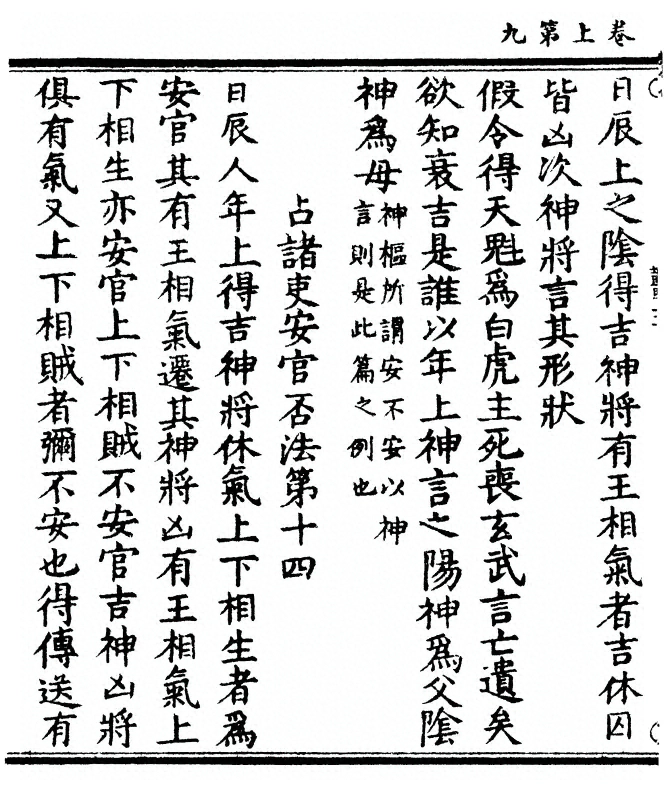 卷上第九
日辰上之陰得吉神將有王相氣者吉休囚
皆凶次神將言其形狀
假令得天魁為白虎主死喪玄武言亡遺矣
欲知衰吉是誰以年上神言之陽神為父陰
神為母神樞所謂安不安以神
言則是此篇之例也
占諸吏安官否法第十四
日辰人年上得吉神將休氣上下相生者為
安官其有王相氣遷其神將凶有王相氣上
下相生亦安官上下相賊不安官吉神凶將
俱有氣又上下相賊者彌不安也得傳送有